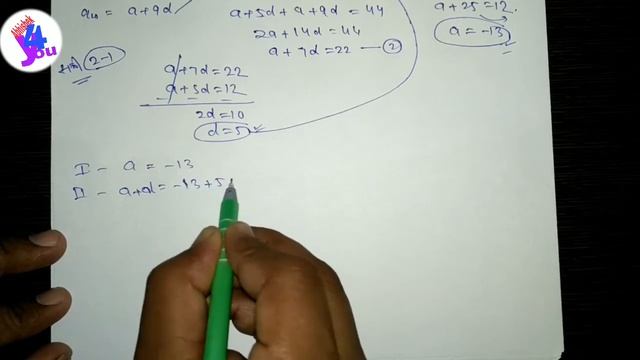 a₁₀ = a+9d
a+5d+a+9d = 44
2a+14d = 44
a+7d = 22 — ②
a+25 = 12
a = -13
2-1
a+7d = 22
a+5d = 12
2d = 10
d = 5
I - a = -13
II - a+d = -13+5
4
You